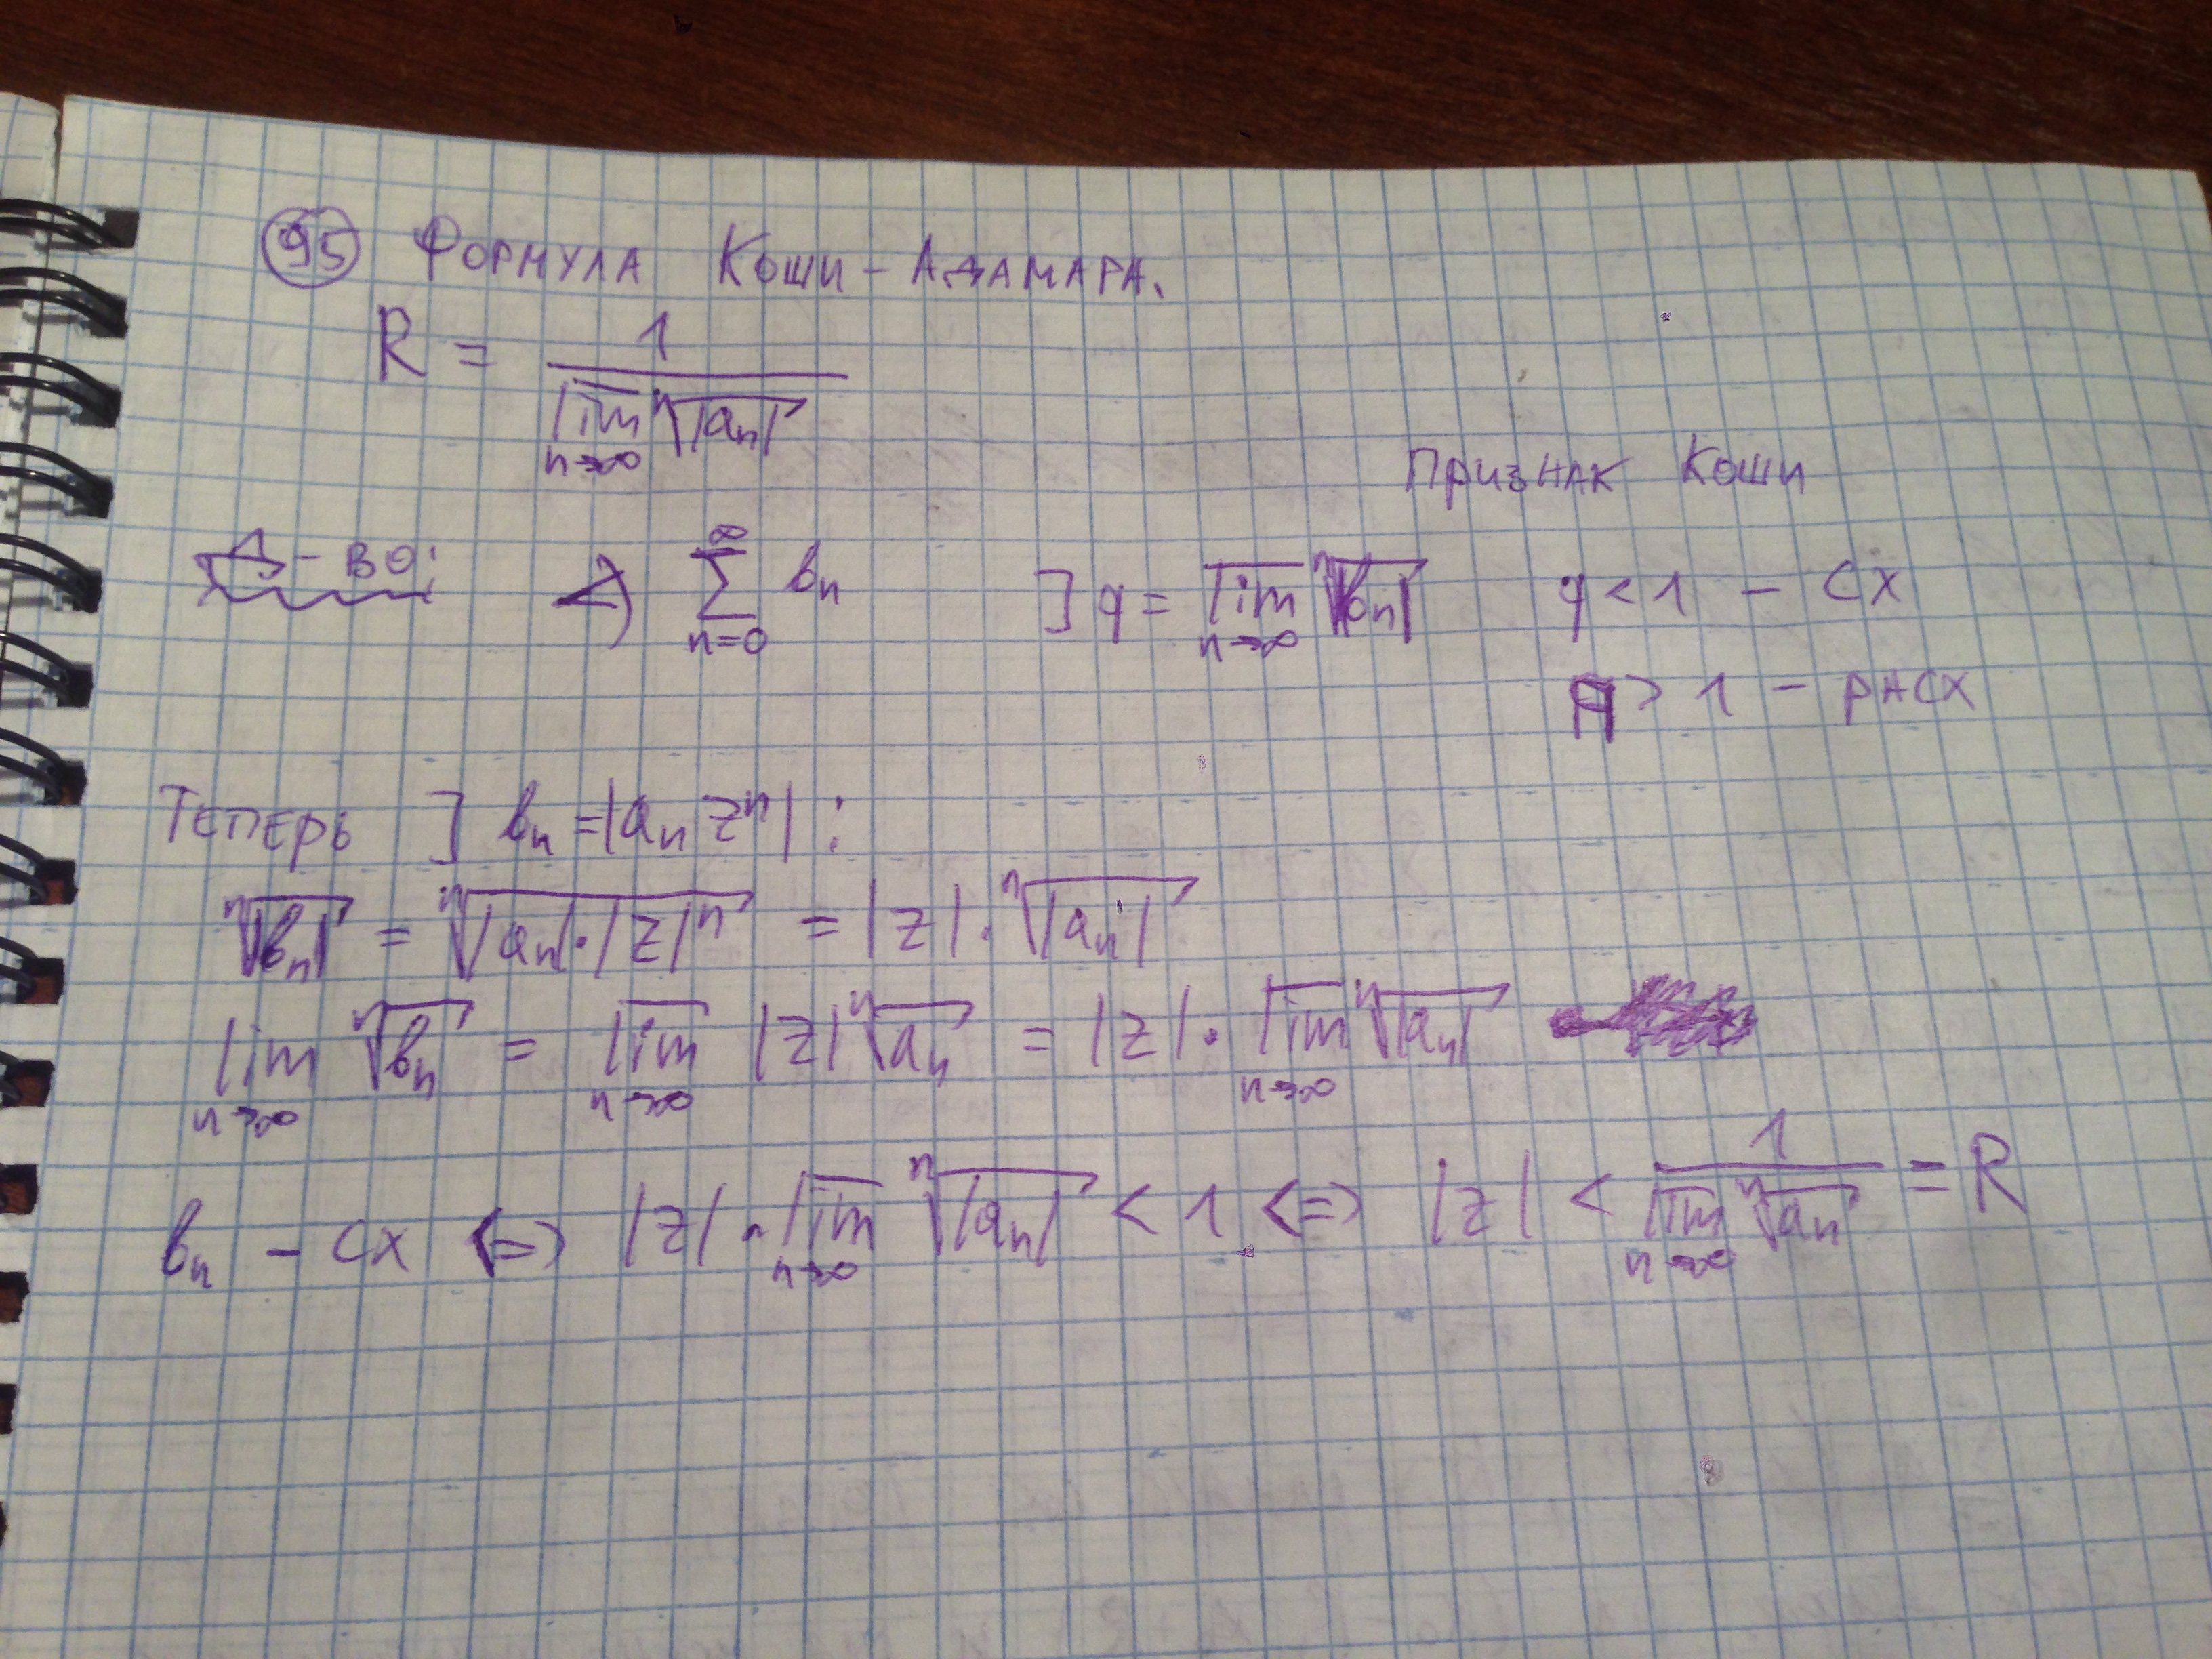 95 Формула Коши-Адамара.
R = 1 / \overline{lim}_{n→∞} ⁿ√|aₙ|
Признак Коши
Д-во: ∑_{n=0}^{∞} bₙ ] q = \overline{lim}_{n→∞} ⁿ√|bₙ| q < 1 - сх
q > 1 - расх
Теперь ] bₙ = |aₙ zⁿ| :
ⁿ√|bₙ| = ⁿ√|aₙ|·|z|ⁿ = |z|·ⁿ√|aₙ|
lim_{n→∞} ⁿ√bₙ = \overline{lim}_{n→∞} |z| ⁿ√aₙ = |z|·\overline{lim}_{n→∞} ⁿ√|aₙ|
bₙ - сх <=> |z|·\overline{lim}_{n→∞} ⁿ√|aₙ| < 1 <=> |z| < 1 / \overline{lim}_{n→∞} ⁿ√aₙ = R